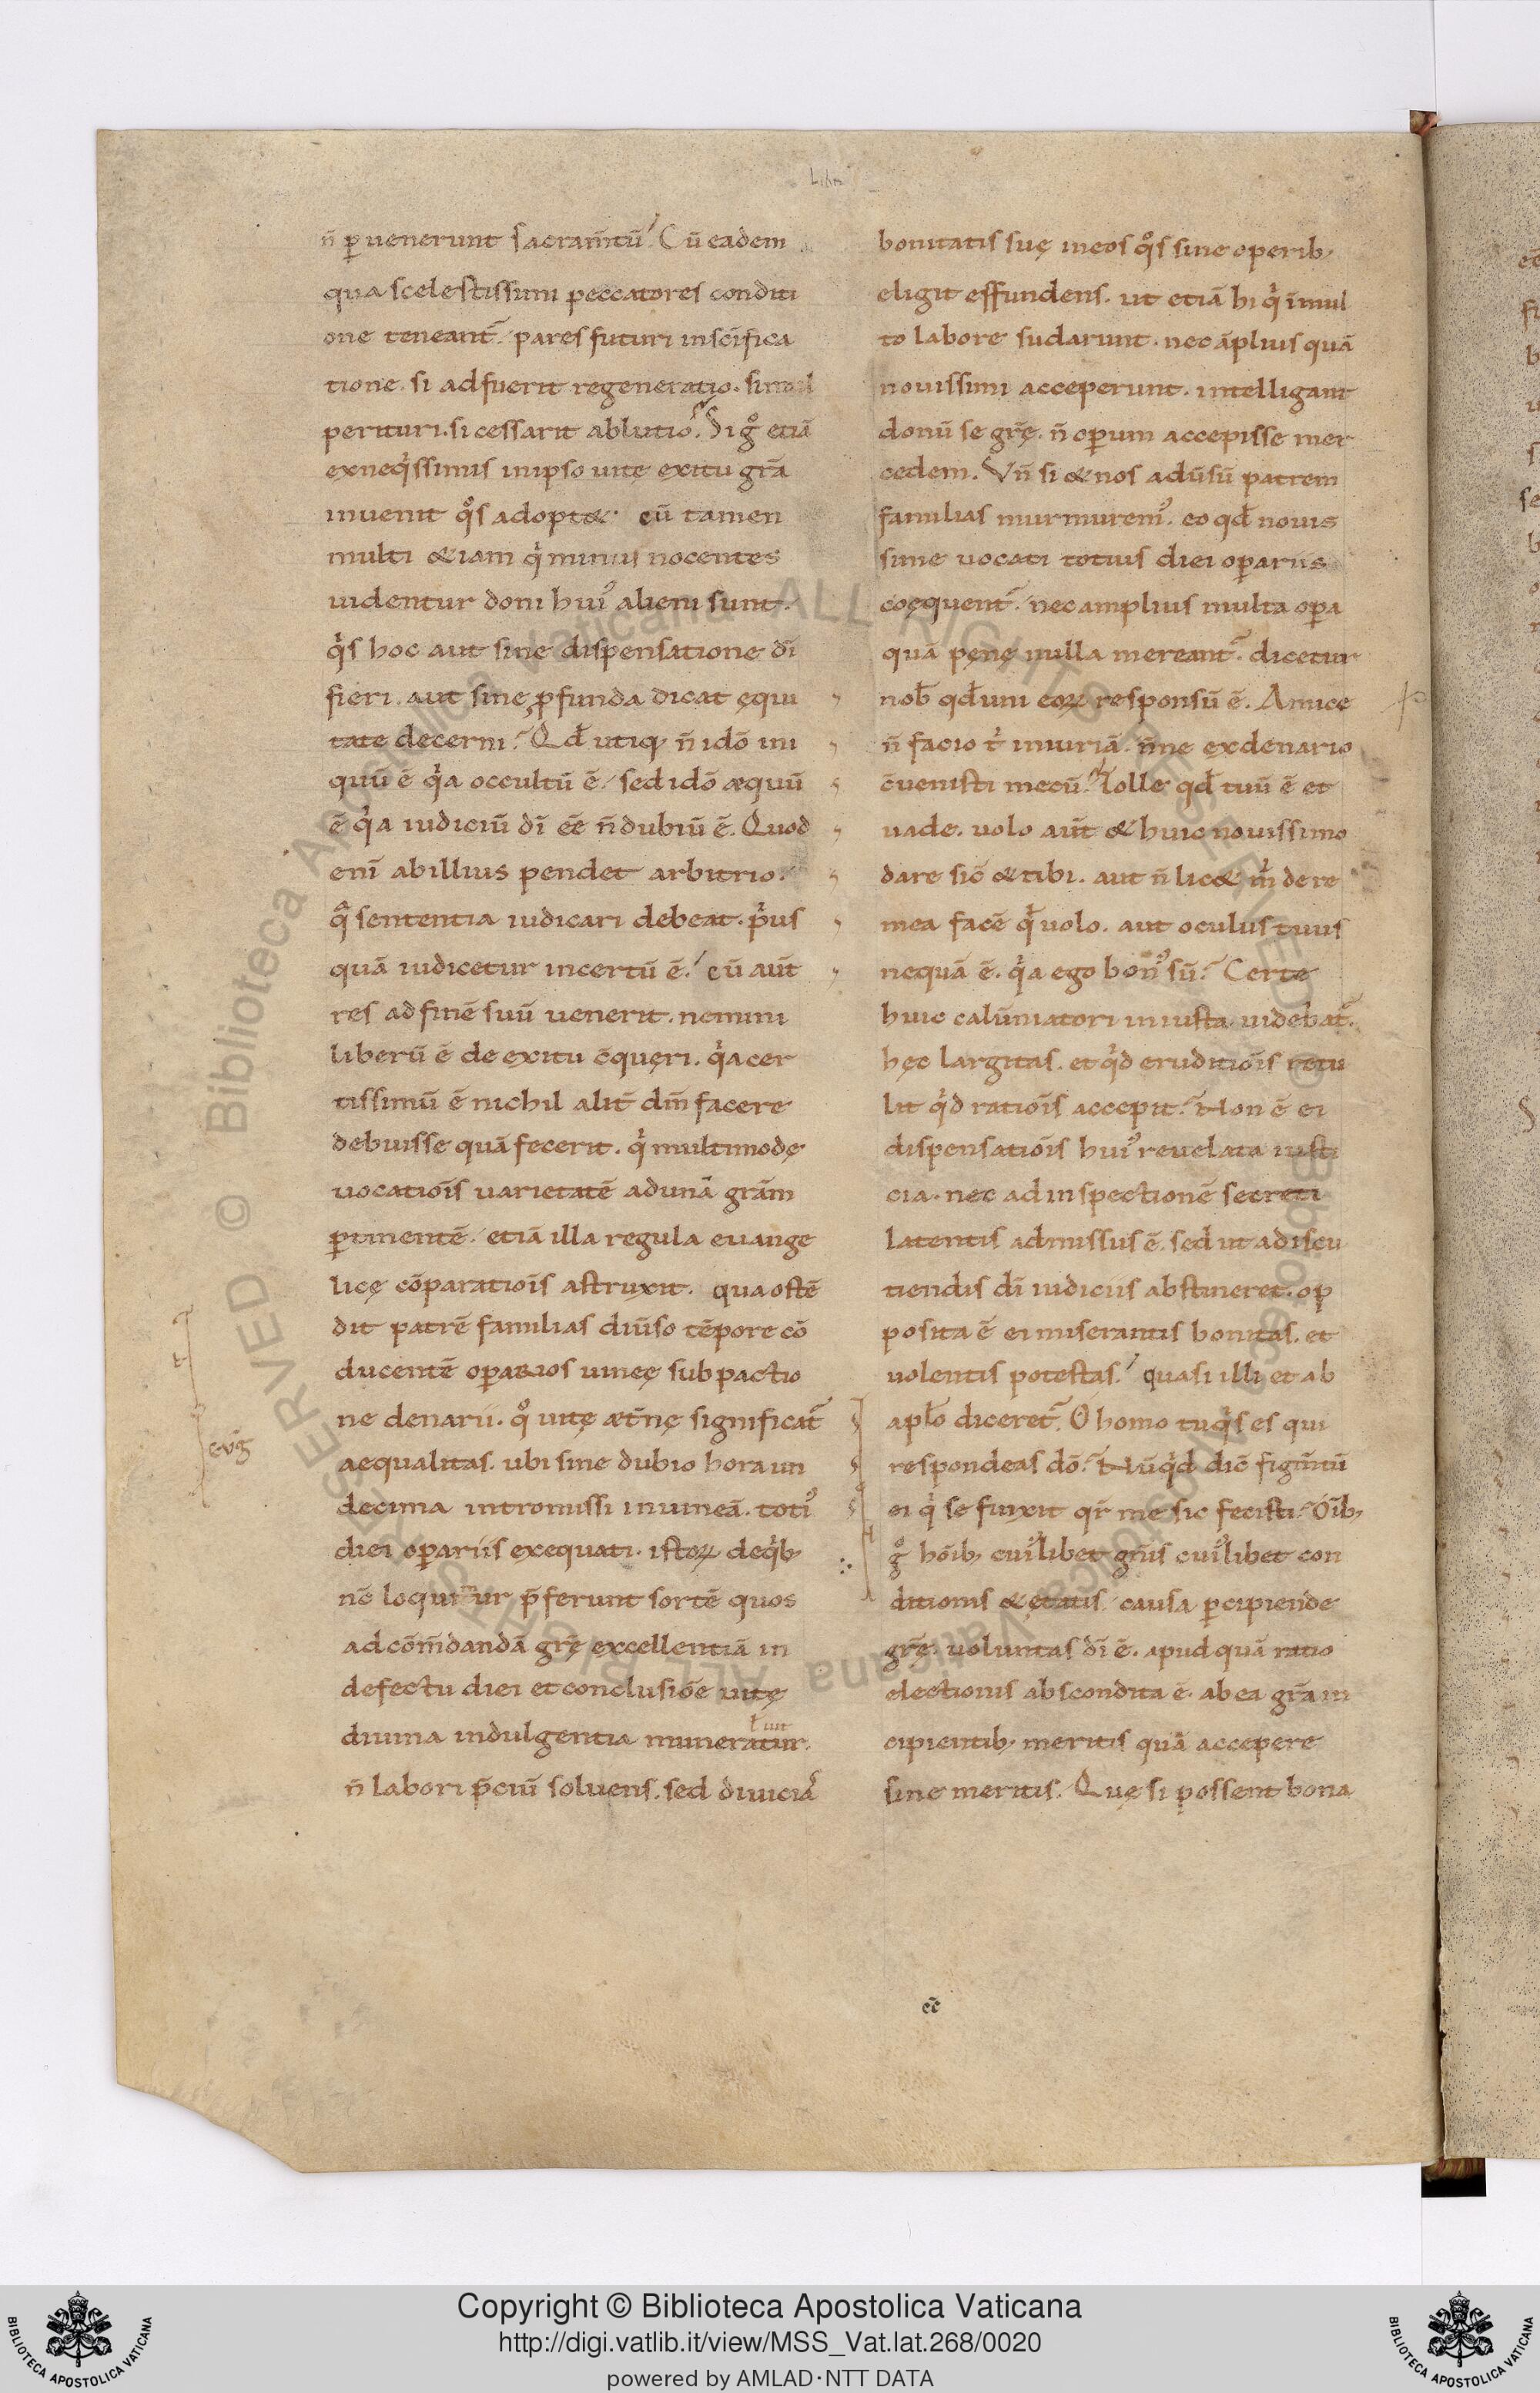 Libr
n̄ ꝑuenerunt sacram̄tū? Cū eadem
qua scelestissimi peccatores conditi
one teneant᷑. pares futuri in sc̄ifica
tione. si adfuerit regeneratio. simul
perituri. si cessarit ablutio? Si gͦ etiā
ex neqͥssimis in ipso uitę exitu gr̄a
inuenit qͦs adopt&. cū tamen
multi &iam qͥ minus nocentes
uidentur doni huiꝰ alieni sunt.
qͥs hoc aut sine dispensatione dī
fieri. aut sine ꝓfunda dicat ęqui
tate decerni? Qd̄ utiq; n̄ idō ini
quū ē qͥa occultū ē. sed idō æquū
ē qͥa iudiciū dī eē n̄ dubiū ē. Quod
enī ab illius pendet arbitrio.
qͣ sententia iudicari debeat. pͥus
quā iudicetur incertū ē. cū aūt
res ad finē suū uenerit. nemini
liberū ē de exitu c̄quęri. qͥa cer
tissimū ē nichil alit̄ dm̄ facere
debuisse quā fecerit. qͥ multimodę
uocatiōis uarietatē ad unā grām
ꝑtinentē. etiā illa regula euange
licę cōparatiōis astruxit. qua ostē
dit patrē familias diūso tēpore cō
ducentē oꝑarios uineę sub pactio
ne denarii. qͦ uitę æt̄nę significat᷑
aequalitas. ubi sine dubio hora un
decima intromissi in uineā. totiꝰ
diei oꝑariis exequati. istoꝝ deqͥb;
nē loquitur p̄ferunt sortē quos
ad cōm̄dandā gr̄ę excellentiā in
defectu diei et conclusiōe uitę
ł uit
diuina indulgentia muneratur.
n̄ labori p̄ciū soluens. sed diuiciaſ
euḡ
bonitatis suę in eos qͦs sine operib;
eligit effundens. ut etiā hi qͥ ī mul
to labore sudarunt. nec āplius quā
nouissimi acceperunt. intelligant
donū se gr̄ę. n̄ oꝑum accepisse mer
cedem. Vn̄ si & nos adūsū patrem
familias murmuremꝰ. eo qd̄ nouis
sime uocati totius diei oꝑariis
coęquent᷑. nec amplius multa oꝑa
quā pęne nulla mereant᷑. dicetur
nob̄ qd̄ uni eoꝝ responsū ē. Amice
n̄ facio tͥ iniuriā. n̄ne ex denario
c̄uenisti mecū? Tolle qd̄ tuū ē et
uade. uolo aūt & huic nouissimo
dare sic̄ & tibi. aut n̄ lic& mͥ de re
mea facē qd̄ uolo. aut oculus tuus
nequā ē. qͥa ego bonꝰ sū? Certe
huic calūniatori iniusta uidebat᷑
hęc largitas. et qͥd eruditiōis retu
lit qͥd ratiōis accepit? Non ē ei
dispensatiōis huiꝰ reuelata iusti
cia. nec ad inspectionē secreti
latentis admissus ē. sed ut a discu
tiendis dī iudiciis abstineret. op
posita ē ei miserantis bonitas. et
uolentis potestas. quasi illi et ab
apłō diceret᷑. O homo tu qͥs es qui
respondeas dō? Nūqͥd dic̄ figm̄tū
ei qͥ se finxit qr̄ me sic fecisti? Oīb;
gͦ hōib; cuiͥlibet gn̄is cuiͥlibet con
ditionis & ętatis causa ꝑcipiendę
gr̄ę. uoluntas dī ē. apud quā ratio
electionis abscondita ē. ab ea gr̄a in
cipientib; meritis quā accepere
sine meritis. Quę si possent bona
eē
Copyright © Biblioteca Apostolica Vaticana
http://digi.vatlib.it/view/MSS_Vat.lat.268/0020
powered by AMLAD·NTT DATA
BIBLIOTECA APOSTOLICA VATICANA
BIBLIOTECA APOSTOLICA VATICANA